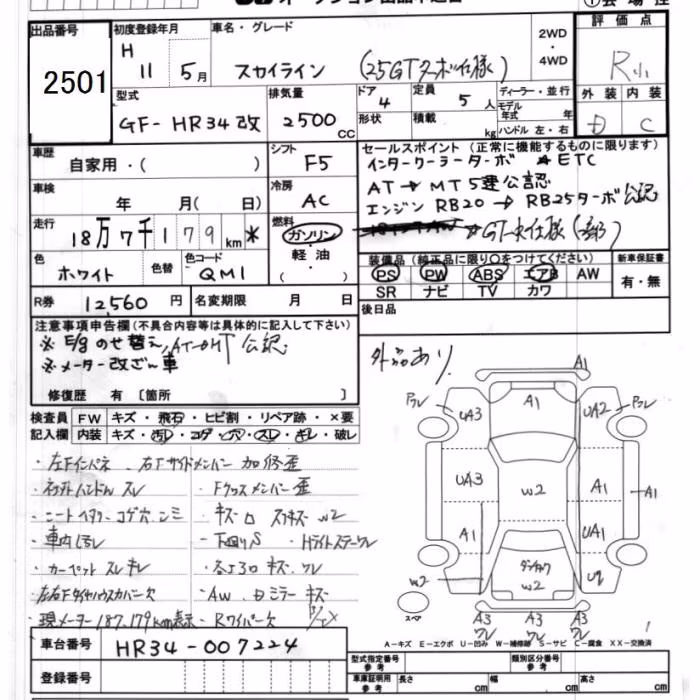 出品番号
2501
初度登録年月
H 11 5月
車名・グレード
スカイライン (25GTターボ仕様)
2WD
・
4WD
評価点
R
外装 内装
C
型式
GF-HR34改
排気量
2500 CC
ドア
4
定員
5 人
形状
積載
kg
ディーラー・並行
モデル年式 年
ハンドル 左・右
車歴
自家用・( )
シフト
F5
車検
年 月( 日)
冷房
AC
走行
18万7千179km *
燃料
ガソリン
・
軽油
( )
色
ホワイト
色替
色コード
QM1
R券
12,560 円
名変期限 月 日
セールスポイント(正常に機能するものに限ります)
インタークーラーターボ ETC
AT→MT5速公認
エンジンRB20→RB25ターボ公認
装備品(純正品に限り○をつけてください)
PS PW ABS エアB AW
SR ナビ TV カワ
新車保証書
有・無
後日品
注意事項申告欄(不具合内容等は具体的に記入して下さい)
※E/gのせ替え, AT→MT公認
※メーター改ざん車
修復歴 有 〔箇所 〕
外品あり
検査員
記入欄
FW キズ・飛石・ヒビ割・リペア跡・×要
内装 キズ・汚レ・コゲ・穴・スレ・キレ・破レ
・左Fインパネ、右Fサイドメンバー加修歪
・ステアリングハンドルスレ
・Fクロスメンバー歪
・シートヘタリ・コゲ穴・シミ
・車内汚レ
・下回りS
・カーペットスレキレ
・左右Fタイヤハウスカバー欠
・AW、ミラーキズ
・現メーター187,179km表示
・Rワイパー欠
A1
UA3
A1
UA2
UA3
W2
A1
A1
A1
UA1
W2
W2
U2
スペア
A3
A3
A3
A-キズ E-エクボ U-凹み W-補修跡 S-サビ C-腐食 XX-交換済
車台番号
HR34-007224
登録番号
型式指定番号
参考
類別区分番号
参考
車庫証明用
参考
長さ cm
幅 cm
高さ cm